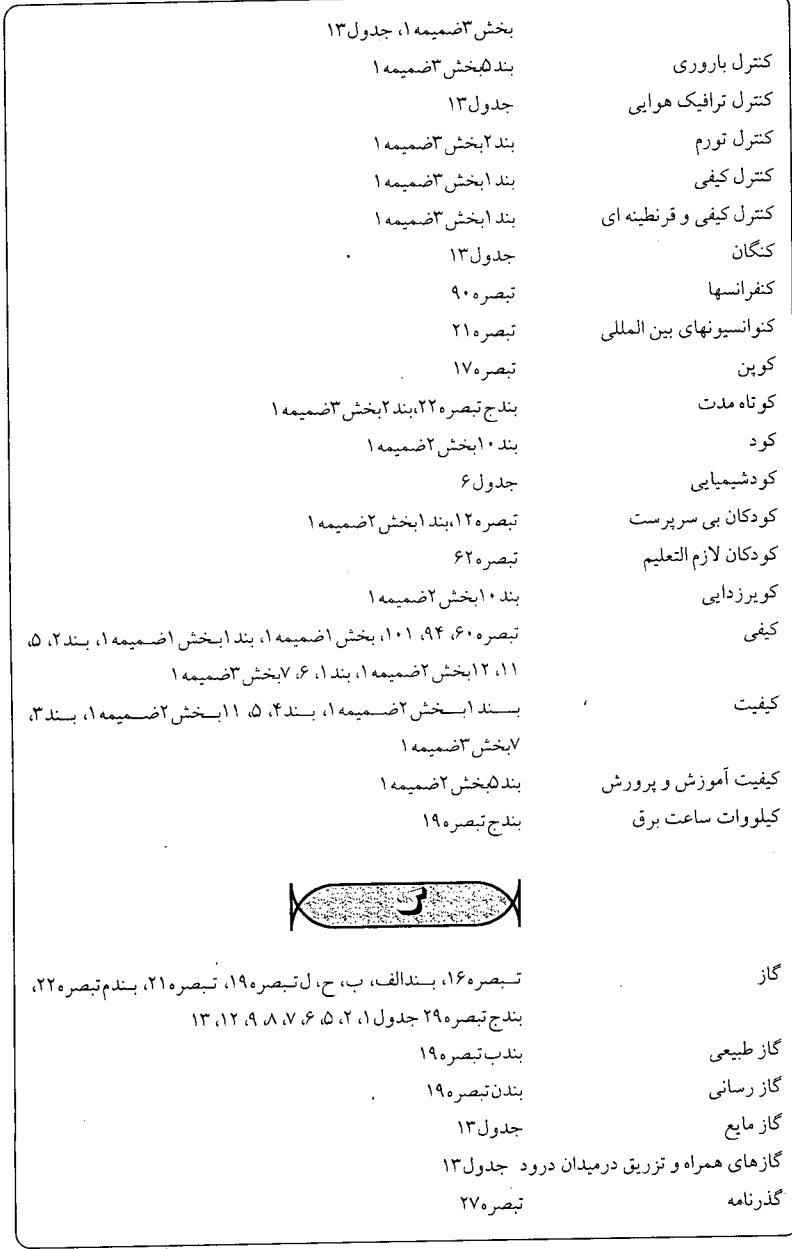 بخش۳ضمیمه۱، جدول۱۳
کنترل باروری بند۵بخش۳ضمیمه۱
کنترل ترافیک هوایی جدول۱۳
کنترل تورم بند۲بخش۳ضمیمه۱
کنترل کیفی بند۱بخش۳ضمیمه۱
کنترل کیفی و قرنطینه ای بند۱بخش۳ضمیمه۱
کنگان جدول۱۳
کنفرانسها تبصره۹۰
کنوانسیونهای بین المللی تبصره۲۱
کوپن تبصره۱۷
کوتاه مدت بندج تبصره۲۲،بند۲بخش۳ضمیمه۱
کود بند۱۰بخش۲ضمیمه۱
کودشیمیایی جدول۶
کودکان بی سرپرست تبصره۱۲،بند۱بخش۲ضمیمه۱
کودکان لازم التعلیم تبصره۶۲
کویرزدایی بند۱۰بخش۲ضمیمه۱
کیفی تبصره۶۰، ۹۴، ۱۰۱، بخش۱ضمیمه۱، بند۱بخش۱ضمیمه۱، بند۲، ۵،
۱۱، ۱۲بخش۲ضمیمه۱، بند۱، ۶، ۷بخش۳ضمیمه۱
کیفیت بند۱بخش۲ضمیمه۱، بند۴، ۵، ۱۱بخش۲ضمیمه۱، بند۳،
۷بخش۳ضمیمه۱
کیفیت آموزش و پرورش بند۵بخش۲ضمیمه۱
کیلووات ساعت برق بندج تبصره۱۹
گ
گاز تبصره۱۶، بندالف، ب، ح، ل تبصره۱۹، تبصره۲۱، بندم تبصره۲۲،
بندج تبصره۲۹ جدول۱، ۲، ۵، ۶، ۷، ۸، ۹، ۱۲، ۱۳
گاز طبیعی بندب تبصره۱۹
گاز رسانی بندن تبصره۱۹
گاز مایع جدول۱۳
گازهای همراه و تزریق درمیدان درود جدول۱۳
گذرنامه تبصره۲۷